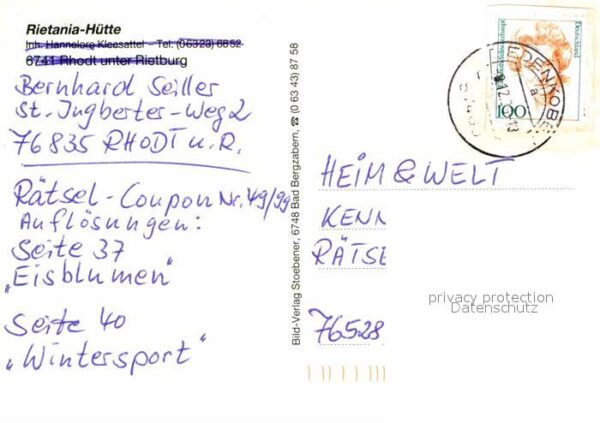 Rietania-Hütte
Inh. Hannelore Kleesattel – Tel. (06323) 6852
6741 Rhodt unter Rietburg
Bernhard Seiller
St. Ingberter-Weg 2
76835 RHODT u. R.
Rätsel-Coupon Nr. 49/99
Auflösungen:
Seite 37
„Eisblumen"
Seite 40
„Wintersport"
Bild-Verlag Stoebener, 6748 Bad Bergzabern, ☎ (0 63 43) 87 58
Deutschland
100
EDENKOBE
a
HEIM & WELT
KENN
RÄTSE
76528
privacy protection
Datenschutz